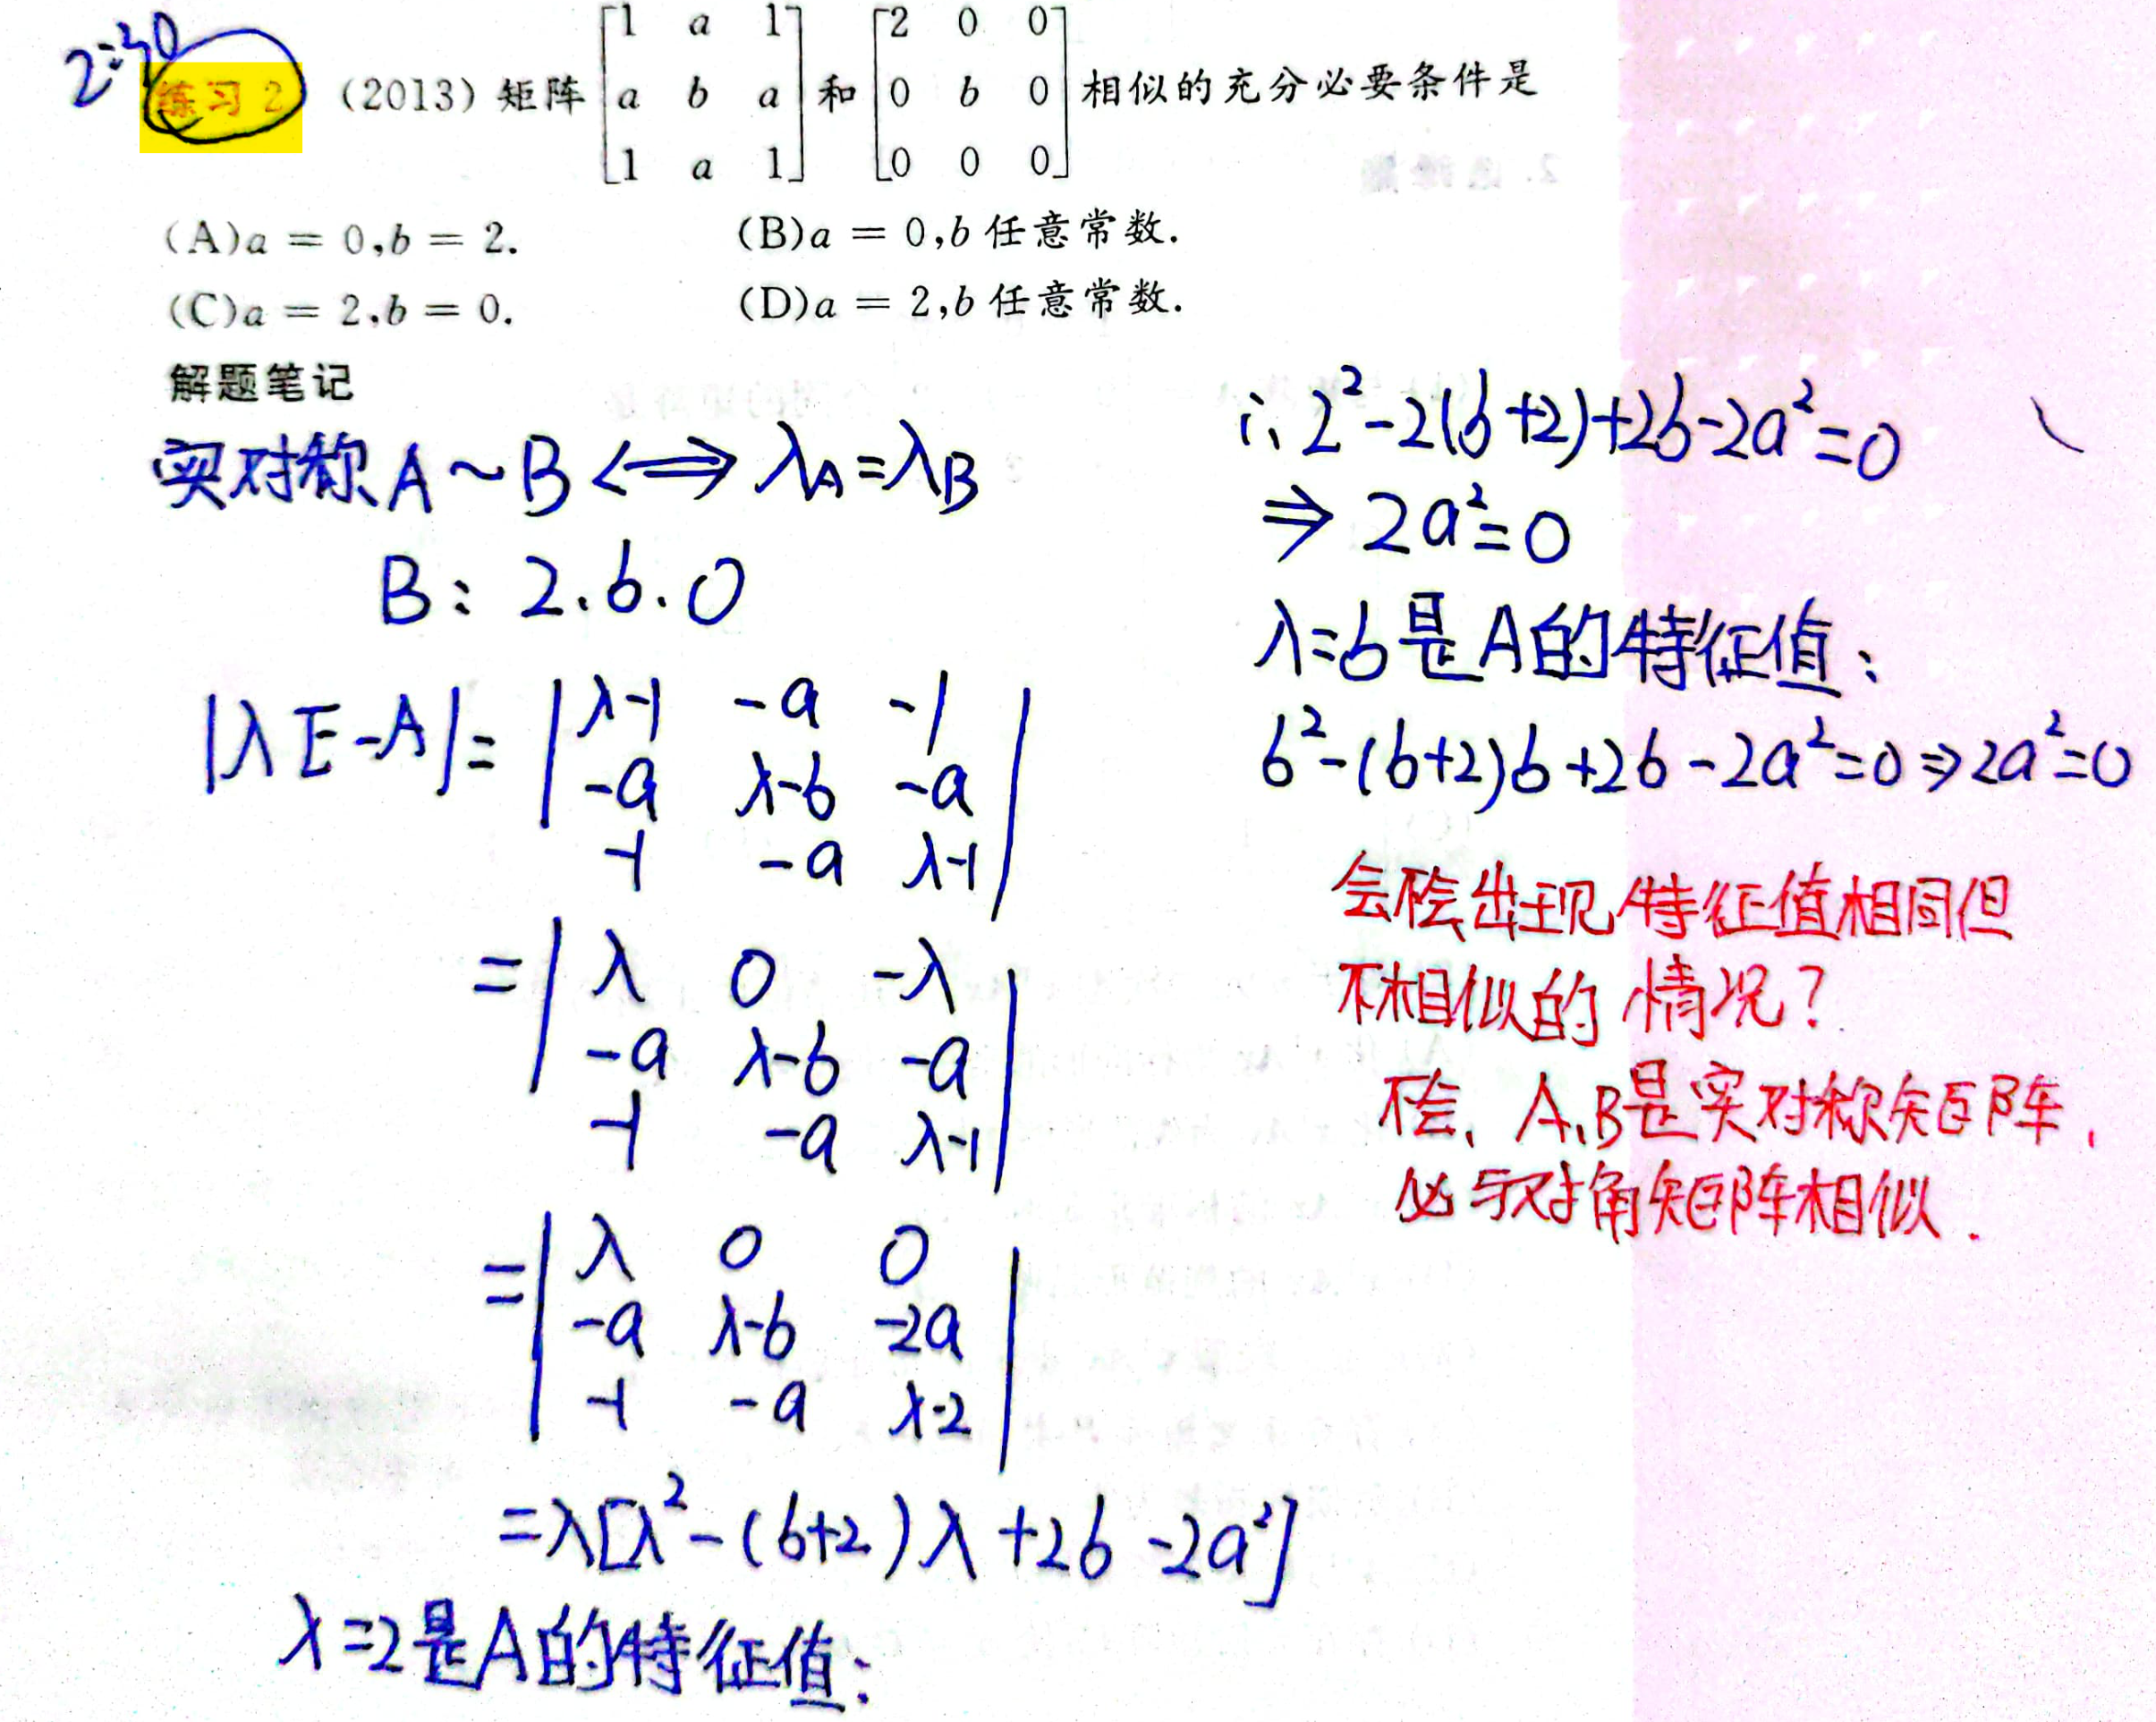 2:40
练习 2 (2013) 矩阵 [1 a 1; a b a; 1 a 1] 和 [2 0 0; 0 b 0; 0 0 0] 相似的充分必要条件是
(A)a = 0,b = 2. (B)a = 0,b 任意常数.
(C)a = 2,b = 0. (D)a = 2,b 任意常数.
解题笔记
实对称 A ~ B <=> λA=λB
B: 2.b.0
|λE-A|= | λ-1 -a -1 |
| -a λ-b -a |
| -1 -a λ-1 |
= | λ 0 -λ |
| -a λ-b -a |
| -1 -a λ-1 |
= | λ 0 0 |
| -a λ-b -2a |
| -1 -a λ-2 |
=λ[λ²-(b+2)λ+2b-2a²]
λ=2是A的特征值:
∴ 2²-2(b+2)+2b-2a²=0
⇒ 2a²=0
λ=b是A的特征值:
b²-(b+2)b+2b-2a²=0⇒2a²=0
会不会出现特征值相同但
不相似的情况?
不会, A,B是实对称矩阵,
必与对角矩阵相似.